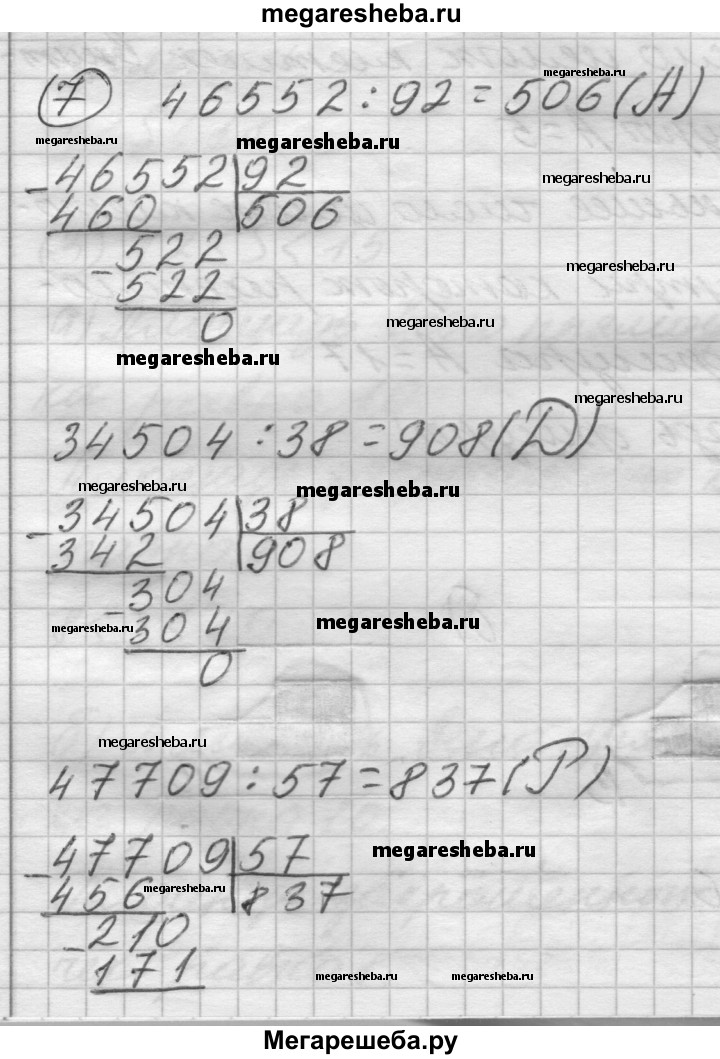 megaresheba.ru
megaresheba.ru
7 46552:92=506(А)
megaresheba.ru
megaresheba.ru
-46552|92
megaresheba.ru
460 506
-522
megaresheba.ru
522
megaresheba.ru
0
megaresheba.ru
megaresheba.ru
34504:38=908(D)
megaresheba.ru
megaresheba.ru
-34504|38
342 908
-304
megaresheba.ru
megaresheba.ru
304
0
megaresheba.ru
47709:57=837(Р)
megaresheba.ru
-47709|57
megaresheba.ru
456 837
-210
171
megaresheba.ru
megaresheba.ru
Мегарешеба.ру